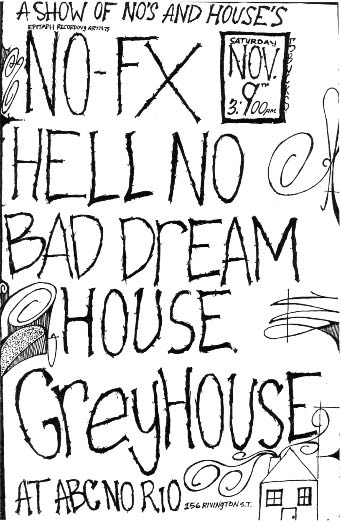 A SHOW OF NO'S AND HOUSE'S
EPITAPH RECORDING ARTISTS
NO-FX
SATURDAY
NOV.
9TH
3:00PM
HELL NO
BAD DREAM
HOUSE
GreyHOUSE
AT ABC NO RIO
156 RIVINGTON S.T.